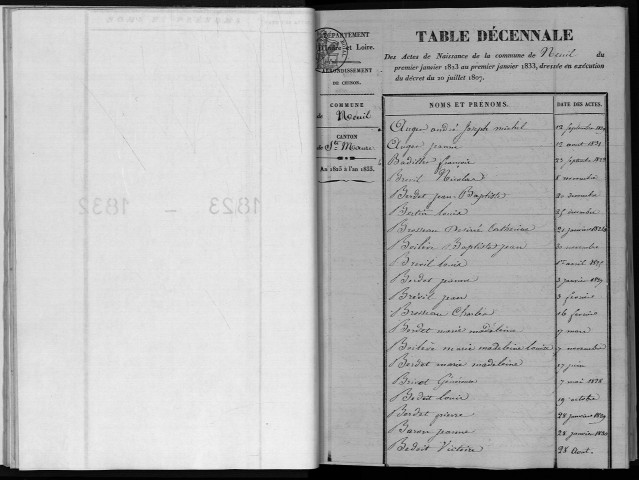 1823 - 1832
DÉPARTEMENT
d'Indre-et-Loire.
ARRONDISSEMENT
DE CHINON.
COMMUNE
de Neuil
CANTON
de Ste Maure
An 1823 à l'an 1833.
TABLE DÉCENNALE
Des Actes de Naissance de la commune de Neuil du
premier janvier 1823 au premier janvier 1833, dressée en exécution
du décret du 20 juillet 1807.
NOMS ET PRÉNOMS. DATE DES ACTES.
Auger andré Joseph michel 12 Septembre
Auger jeanne 12 aout 1831
Badiller françois 22 septembre
Breuil Nicolas 8 novembre
Berdet jean Baptiste 20 decembre
Bertin louis 25 decembre
Brosseau Desiré Catherine 20 janvier 1824
Boileve Baptiste jean 30 novembre
Breuil louis 1er avril 1825
Berdet jeanne 3 janvier
Brévil jean 3 fevrier
Brosseau Charles 16 fevrier
Berdet marie madeleine 7 mars
Boilève marie madeleine louise 7 novembre
Berdet marie madeleine 17 juin
7 mai 1828
Bedoit louis 19 octobre
Berdet pierre 28 janvier 1829
Baron jeanne 28 janvier 1830
Bedoit Victoire 28 Aout.